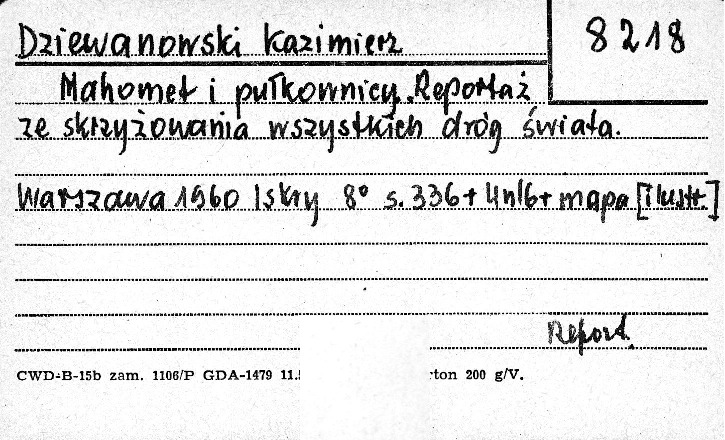 Dziewanowski Kazimierz
8218
Mahomet i pułkownicy. Reportaż
ze skrzyżowania wszystkich dróg świata.
Warszawa 1960 Iskry 8° s. 336 + 4nlb + mapa [ilustr.]
Report.
CWD-B-15b zam. 1106/P GDA-1479 11. ton 200 g/V.